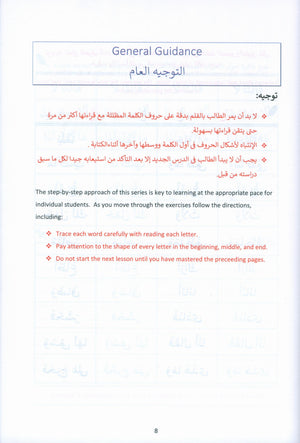 General Guidance
التوجيه العام
توجيه:
❖ لا بد أن يمر الطالب بالقلم بدقة على حروف الكلمة المظللة مع قراءتها أكثر من مرة
حتى يتقن قراءتها بسهولة.
❖ الإنتباه لأشكال الحروف في أول الكلمة ووسطها وآخرها أثناءالكتابة.
❖ يجب أن لا يبدأ الطالب في الدرس الجديد إلا بعد التأكد من استيعابه جيدا لكل ما سبق
دراسته من قبل.
The step-by-step approach of this series is key to learning at the appropriate pace for
individual students. As you move through the exercises follow the directions,
including:
❖ Trace each word carefully with reading each letter.
❖ Pay attention to the shape of every letter in the beginning, middle, and end.
❖ Do not start the next lesson until you have mastered the preceeding pages.
8